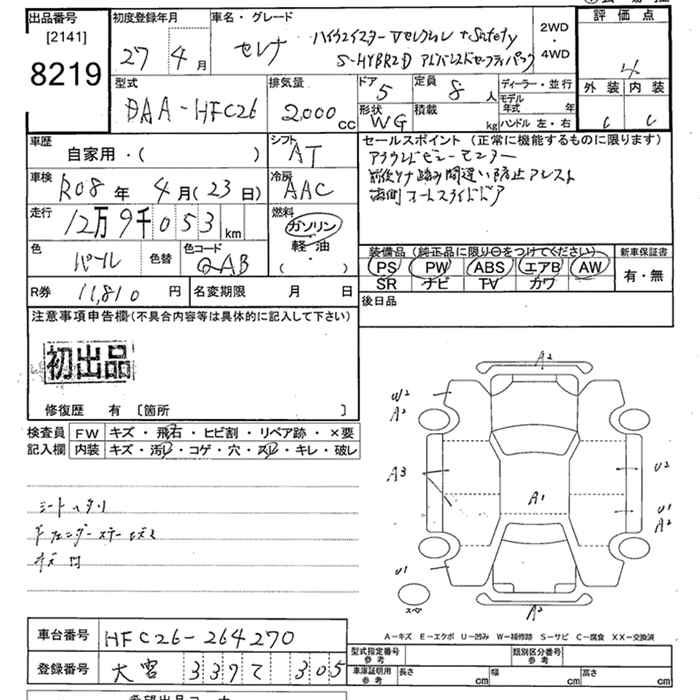 出品番号
[2141]
8219
初度登録年月
27 年 4 月
車名・グレード
セレナ ハイウェイスター Vセレクション +Safety
S-HYBRID アドバンスドセーフティパック
2WD
・
4WD
評価点
4
外装 内装
C C
型式
DAA-HFC26
排気量
2,000 cc
ドア 5
定員 8 人
形状 WG
積載 kg
ディーラー・並行
モデル年式 年
ハンドル 左・右
車歴
自家用・( )
シフト AT
車検
R08 年 4 月 (23 日)
冷房 AAC
走行
12万9千053 km
燃料
ガソリン
軽油
( ・ )
色 パール 色替
色コード QAB
R券 11,810 円
名変期限 月 日
セールスポイント (正常に機能するものに限ります)
アラウンドビューモニター
踏み間違い防止アシスト
両側オートスライドドア
装備品 (純正品に限り○をつけてください)
新車保証書
PS PW ABS エアB AW
SR ナビ TV カワ
有・無
後日品
注意事項申告欄 (不具合内容等は具体的に記入して下さい)
初出品
修復歴 有 [箇所 ]
検査員 FW キズ・飛石・ヒビ割・リペア跡・×要
記入欄 内装 キズ・汚レ・コゲ・穴・スレ・キレ・破レ
シートヘタリ
A2
W2
A2
A3
A1
U2
U1
A2
U1
スペア
A2
A-キズ E-エクボ U-凹み W-補修跡 S-サビ C-腐食 XX-交換済
車台番号 HFC26-264270
登録番号 大宮 337 て 305
型式指定番号
参考
類別区分番号
参考
車庫証明用
参考
長さ cm
幅 cm
高さ cm
希望出品コーナー